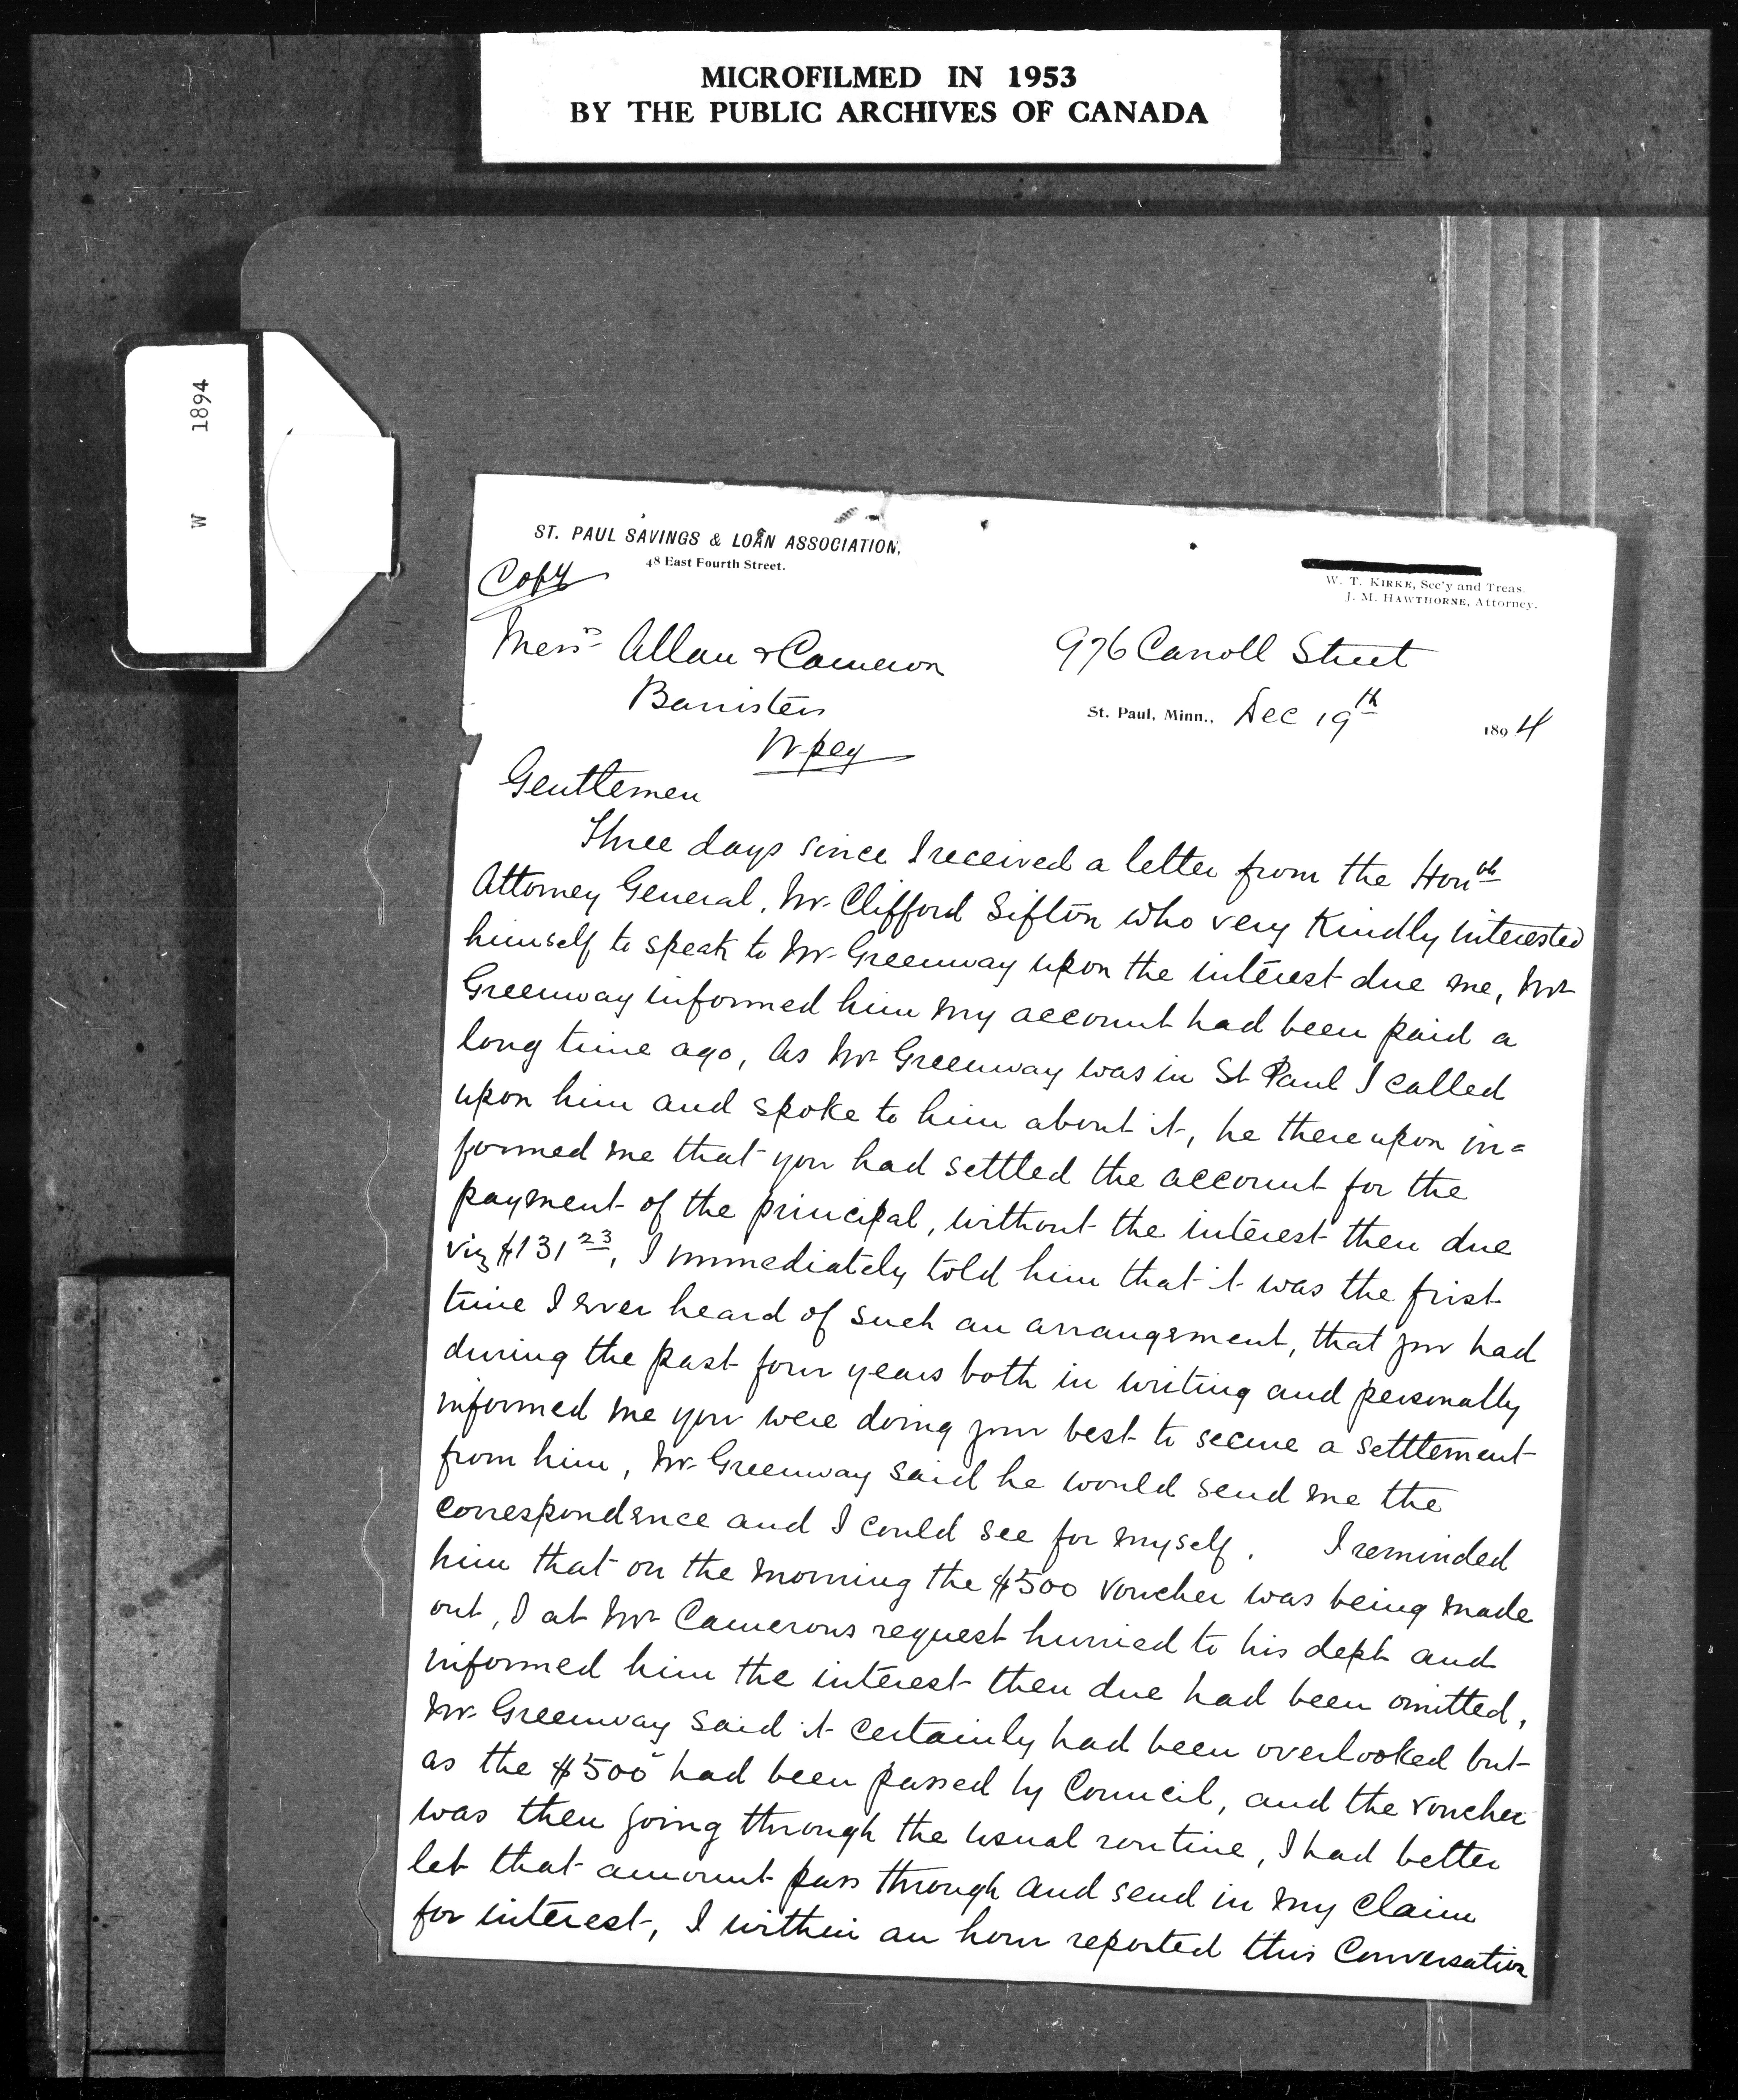 MICROFILMED IN 1953
BY THE PUBLIC ARCHIVES OF CANADA
W 1894
ST. PAUL SAVINGS & LOAN ASSOCIATION,
48 East Fourth Street.
W. T. KIRKE, Sec'y and Treas.
J. M. HAWTHORNE, Attorney.
Copy
Messrs Allan & Cameron
Barristers
Wpeg
976 Carroll Street
St. Paul, Minn., Dec 19th 1894
Gentlemen
Three days since I received a letter from the Honbl
Attorney General, Mr Clifford Sifton who very Kindly interested
himself to speak to Mr Greenway upon the interest due me, Mr
Greenway informed him my account had been paid a
long time ago, as Mr Greenway was in St Paul I called
upon him and spoke to him about it, he thereupon in=
formed me that you had settled the account for the
payment of the principal, without the interest then due
viz $131 23, I immediately told him that it was the first
time I ever heard of such an arrangement, that you had
during the past four years both in writing and personally
informed me you were doing your best to secure a settlement
from him, Mr Greenway said he would send me the
correspondence and I could see for myself. I reminded
him that on the morning the $500 voucher was being made
out, I at Mr Camerons request hurried to his dept and
informed him the interest then due had been omitted,
Mr Greenway said it certainly had been overlooked but
as the $500 had been passed by Council, and the voucher
was then going through the usual routine, I had better
let that amount pass through and send in my claim
for interest, I within an hour reported this Conversation